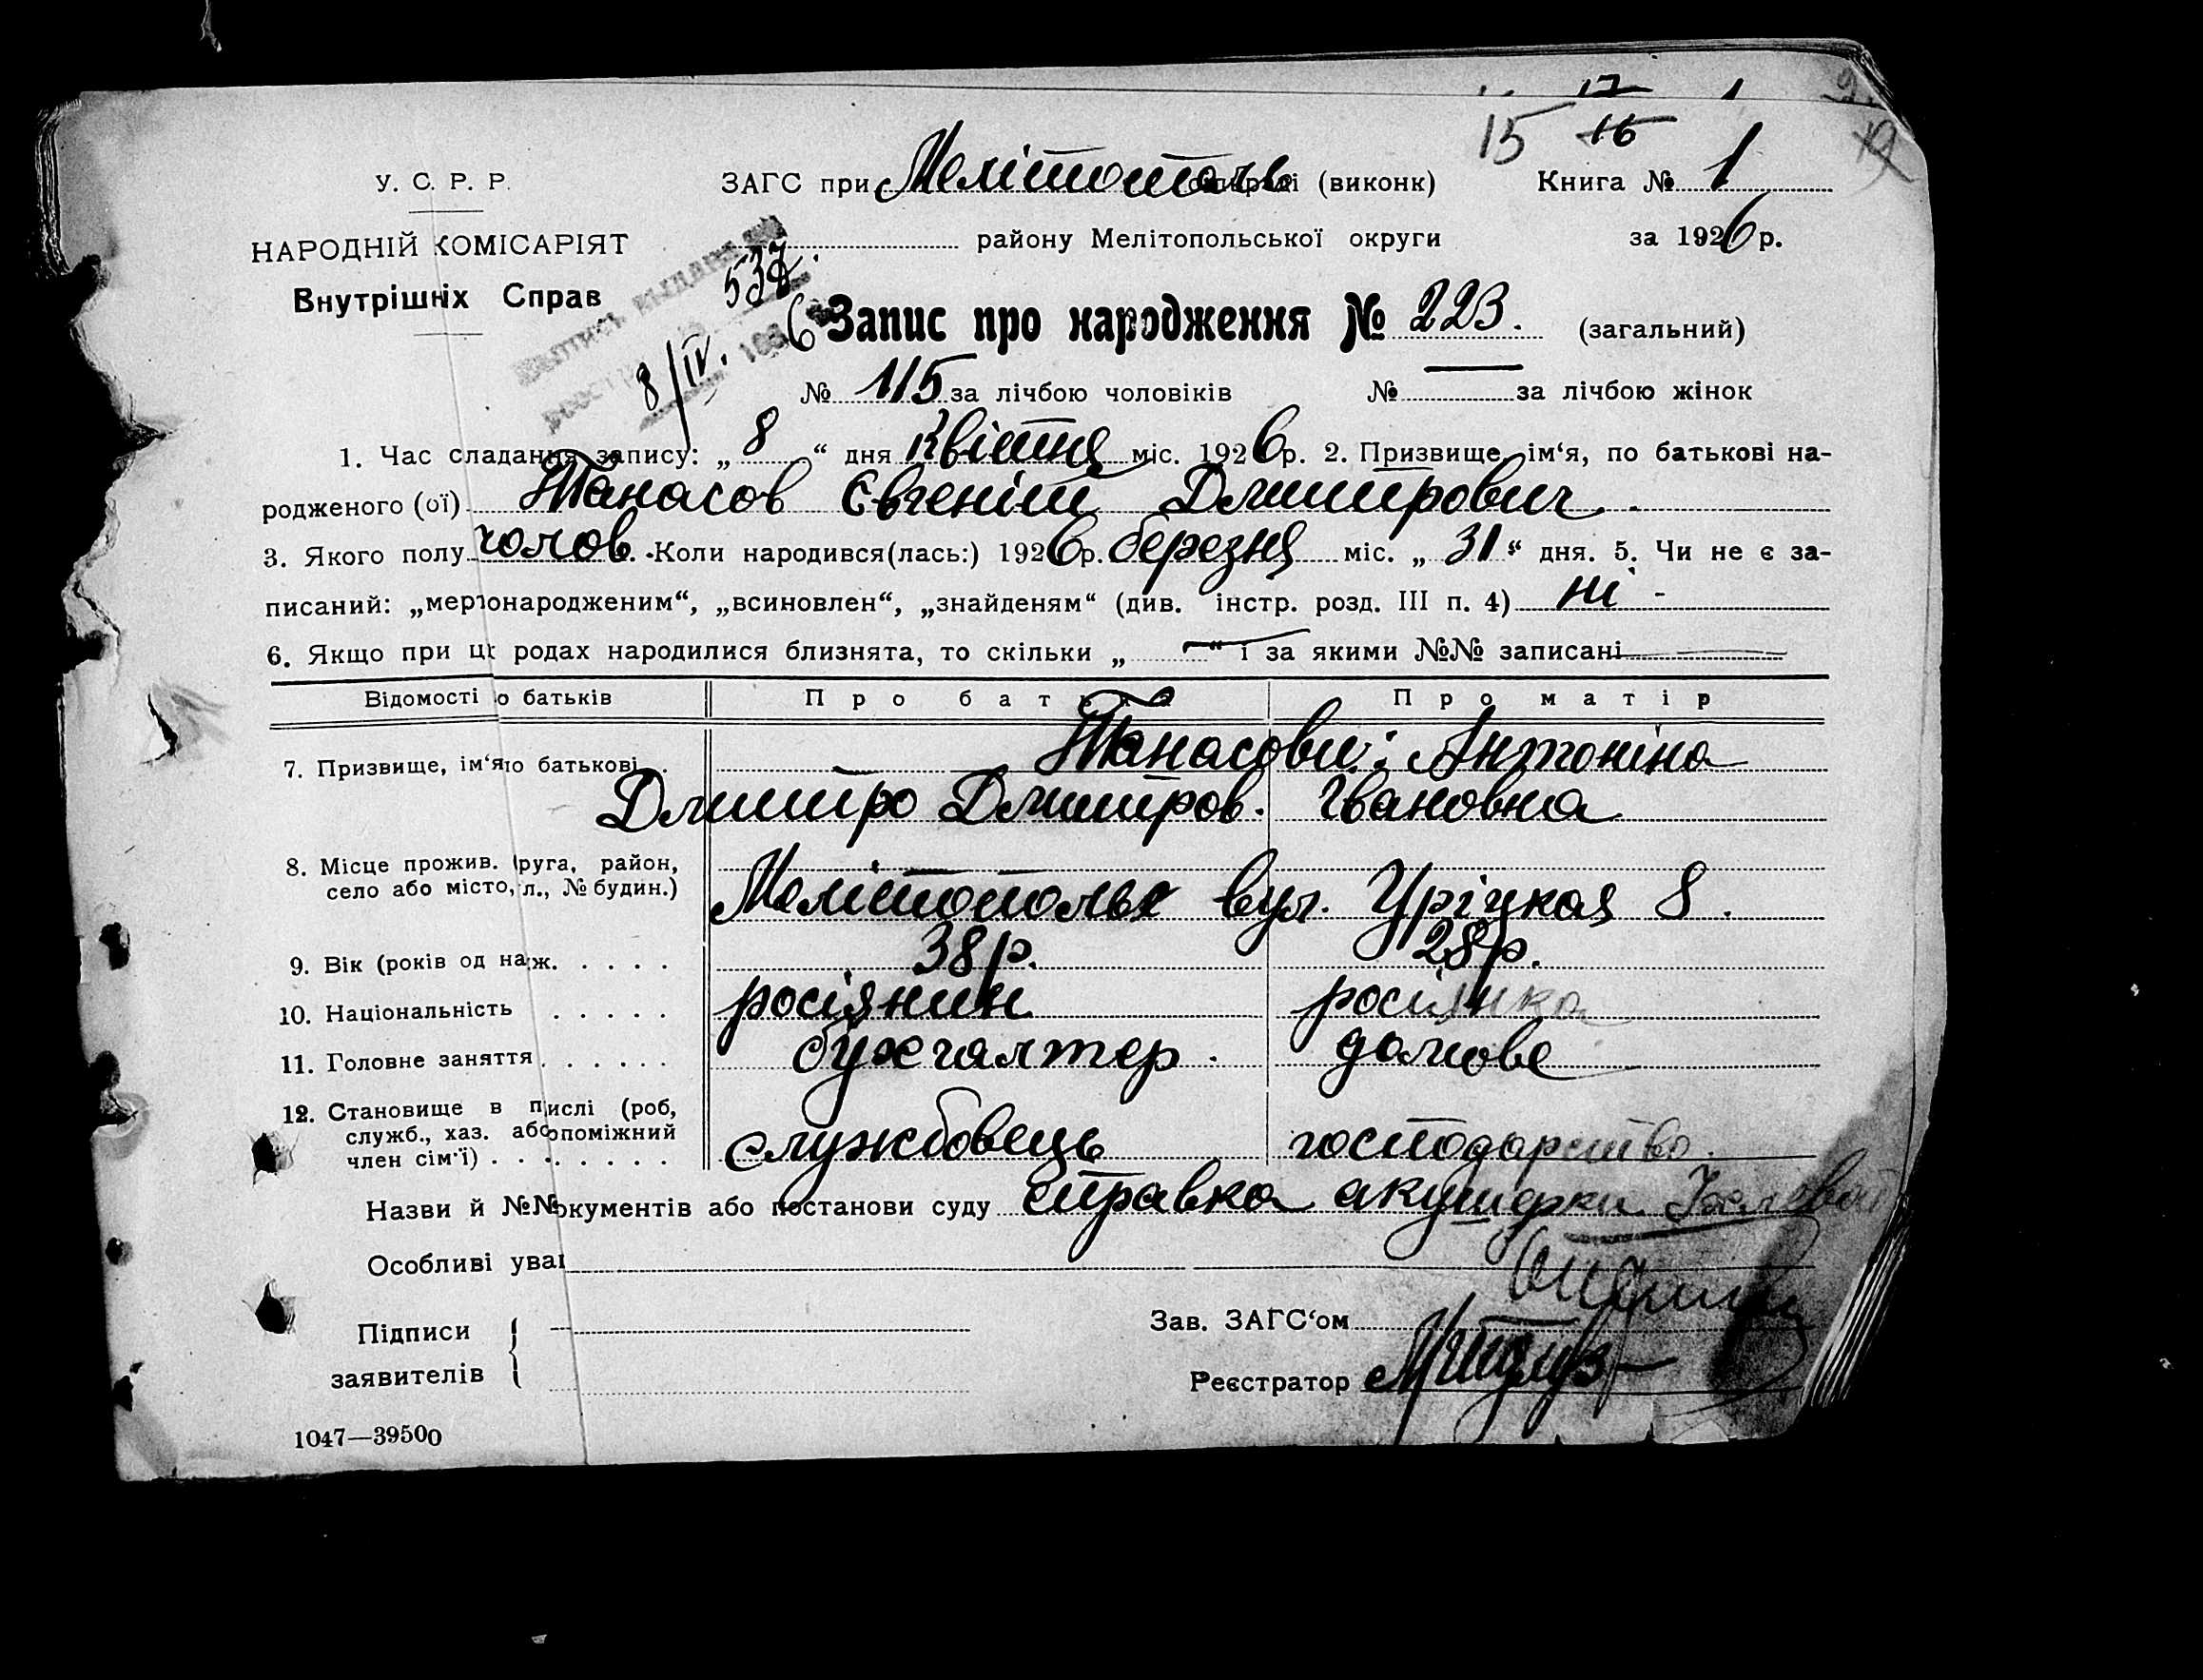 17 1
15 16
У. С. Р. Р. ЗАГС при Мелітополь сільраді (виконк) Книга № 1
НАРОДНІЙ КОМІСАРІЯТ району Мелітопольської округи за 1926 р.
Внутрішніх Справ
537.
8/IV. 6
Запис про народження № 223. (загальний)
№ 115 за лічбою чоловіків № — за лічбою жінок
1. Час сладання запису: „ 8 “ дня Квітня міс. 1926 р. 2. Призвище, ім‘я, по батькові на-
родженого (ої) Танасов Євгеній Дмитрович.
3. Якого полу чолов. Коли народився(лась:) 1926 р. березня міс. „ 31 “ дня. 5. Чи не є за-
писаний: „мертвонародженим“, „всиновлен“, „знайденям“ (див. інстр. розд. III п. 4) ні -
6. Якщо при ц родах народилися близнята, то скільки „ — “ і за якими №№ записані —
Відомості о батьків Про батька Про матір
7. Призвище, ім‘я о батькові Танасови: Антоніна
Дмитро Дмитров. Івановна
8. Місце прожив. руга, район,
село або місто, л., № будин.) Мелітополь вул. Уріцкая 8.
9. Вік (років од наж. 38 р. 28 р.
10. Національність росіянин росіянка
11. Головне заняття бухгалтер. домове
12. Становище в пислі (роб,
служб., хаз. або опоміжний
член сім‘ї) службовець господарство.
Назви й №№ окументів або постанови суду справка акушерки
Особливі уваг
Підписи Зав. ЗАГС‘ом
заявителів Реєстратор
1047—39500